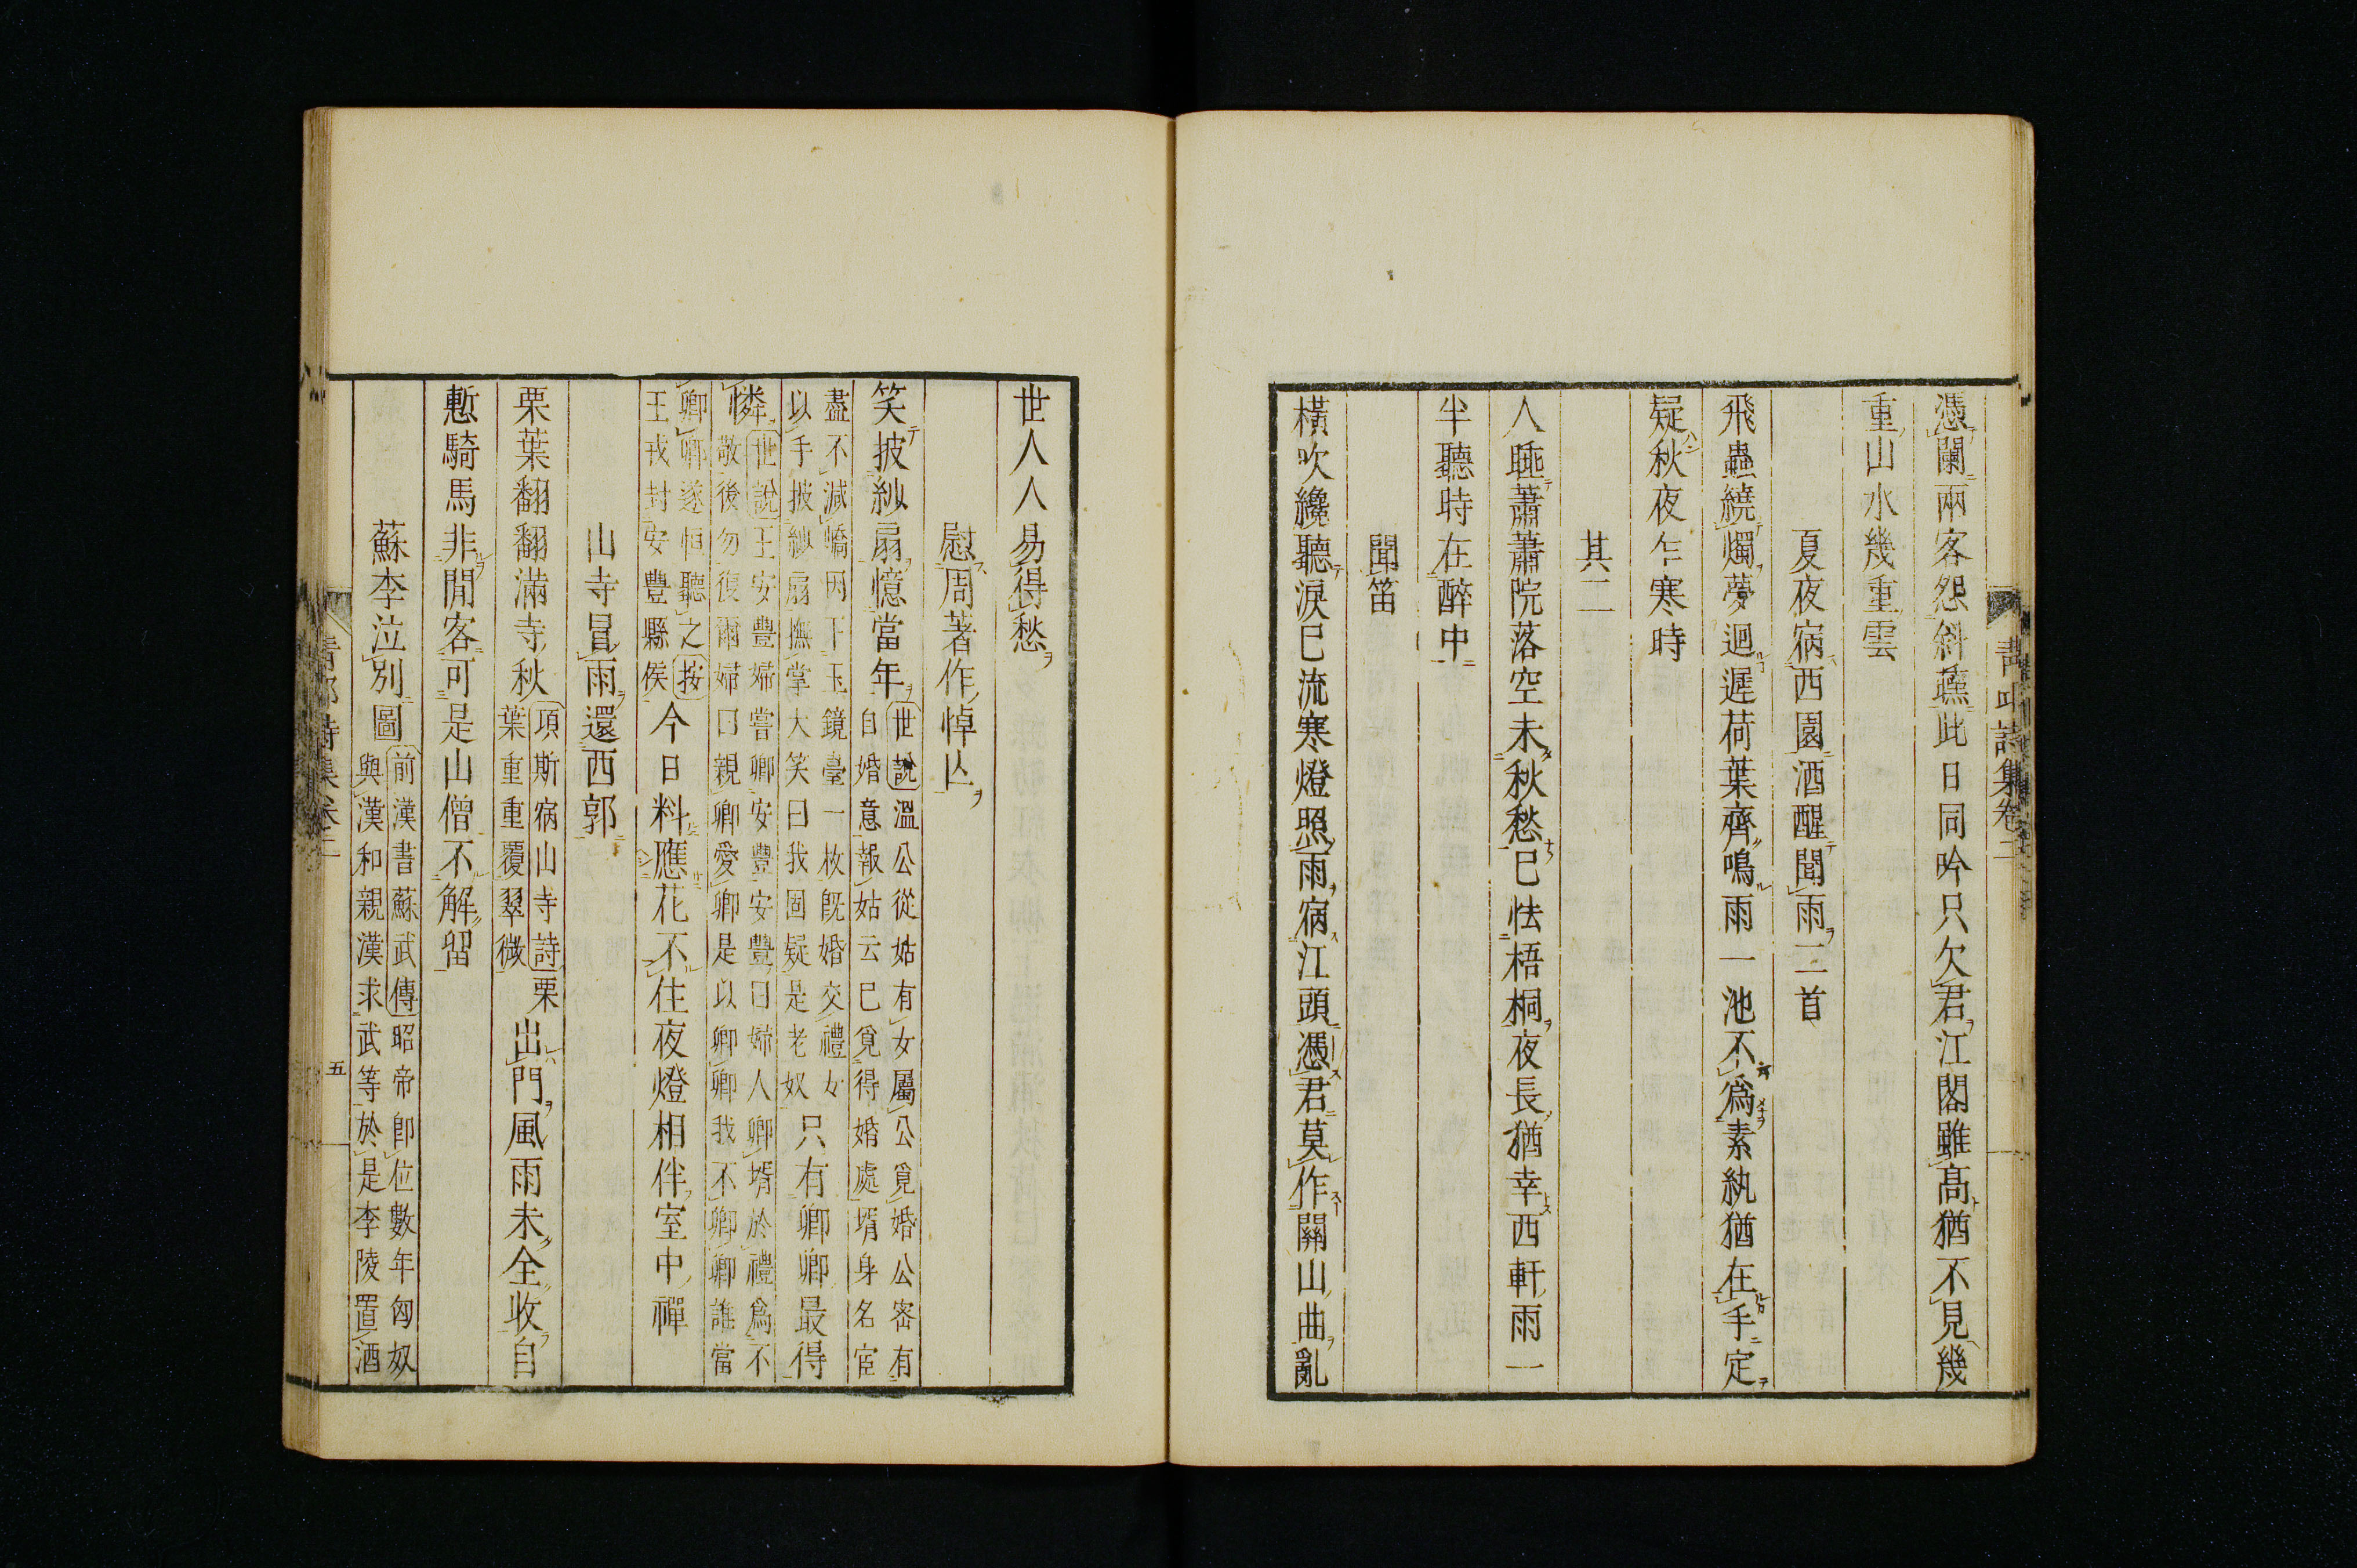 憑闌兩客怨斜蕪此日同吟只欠君江閣雖高猶不見幾
重山水幾重雲
夏夜宿西園酒醒聞雨二首
飛蟲繞燭夢迴遲荷葉齊鳴雨一池不爲素紈猶在手定
疑秋夜乍寒時
其二
人睡蕭蕭院落空未秋愁已怯梧桐夜長猶幸西軒雨一
半聽時在醉中
聞笛
橫吹纔聽淚巳流寒燈照雨宿江頭憑君莫作關山曲亂
青邱詩集卷二
世人人易得愁
慰周著作悼亾
笑披紗扇憶當年
世說溫公從姑有女屬公覓婚公密有
自婚意報姑云已覓得婚處壻身名宦
盡不減嶠因下玉鏡臺一枚旣婚交禮女
以手披紗扇撫掌大笑曰我固疑是老奴
只有卿卿最得
憐
世說王安豐婦嘗卿安豐安豐曰婦人卿壻於禮爲不
敬後勿復爾婦曰親卿愛卿是以卿卿我不卿卿誰當
卿卿遂恒聽之按
王戎封安豐縣侯
今日料應花不住夜燈相伴室中禪
山寺冒雨還西郭
栗葉翻翻滿寺秋
項斯宿山寺詩栗
葉重重覆翠微
出門風雨未全收自
慙騎馬非閒客可是山僧不解留
蘇李泣別圖
前漢書蘇武傳昭帝卽位數年匈奴
與漢和親漢求武等於是李陵置酒
青邱詩集卷二
五